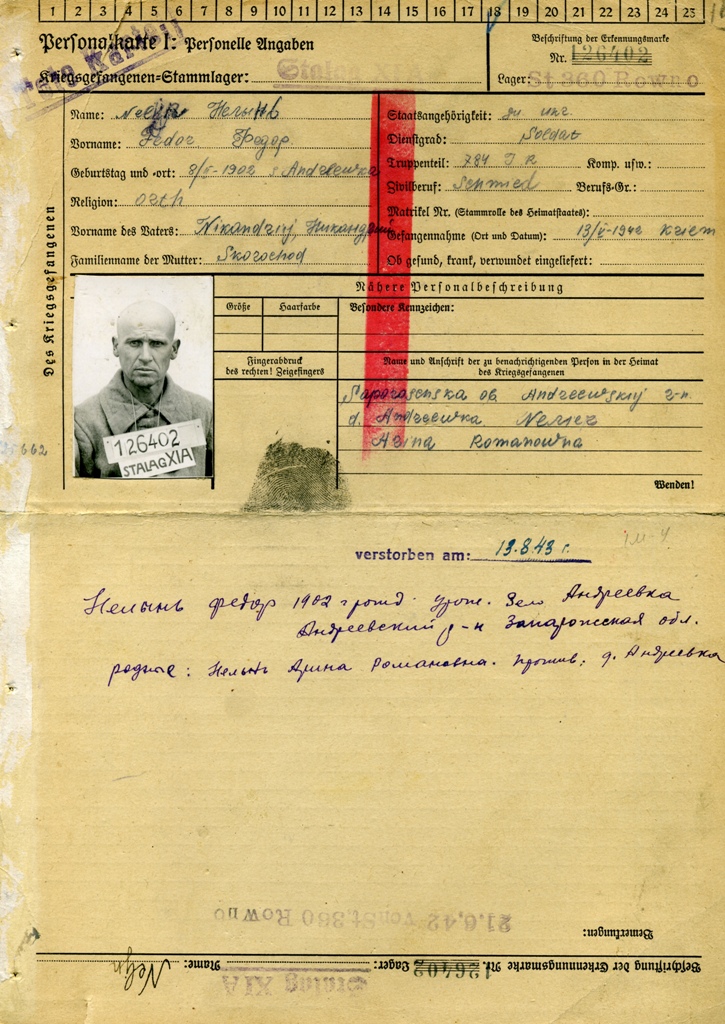 1 2 3 4 5 6 7 8 9 10 11 12 13 14 15 16 17 18 19 20 21 22 23 24 25
Personalkarte I: Personelle Angaben
Kriegsgefangenen-Stammlager: Stalag
Beschriftung der Erkennungsmarke
Nr. 126402
Lager: St 360 Rowno
Des Kriegsgefangenen
Name:
Vorname: Fedor Федор
Geburtstag und -ort: 8/V-1902 s. Andreewka
Religion: orth
Vorname des Vaters: Nikandrij
Familienname der Mutter: Skorochod
Staatsangehörigkeit:
Dienstgrad: Soldat
Truppenteil: 784 I R Komp. usw.:
Zivilberuf: Schmied Berufs-Gr.:
Matrikel Nr. (Stammrolle des Heimatstaates):
Gefangennahme (Ort und Datum): 13/V-1942
Ob gesund, krank, verwundet eingeliefert:
Nähere Personalbeschreibung
Größe Haarfarbe Besondere Kennzeichen:
Fingerabdruck
des rechten! Zeigefingers
Name und Anschrift der zu benachrichtigenden Person in der Heimat
des Kriegsgefangenen
Saporosenska ob Andreewskij r-n
d. Andreewka
Arina Romanowna
126402
STALAG XIA
Wenden!
verstorben am: 13.8.43 г.
Нелынь Федор 1902 г рожд. урож. Андреевка
Андреевский р-н Запарожская обл.
родные: Нелынь Арина Романовна. прожив: д. Андреевка
21.6.42 von St.360 Rowno
Bemerkungen:
Beschriftung der Erkennungsmarke Nr. 126402 Lager: Stalag XIA Name: